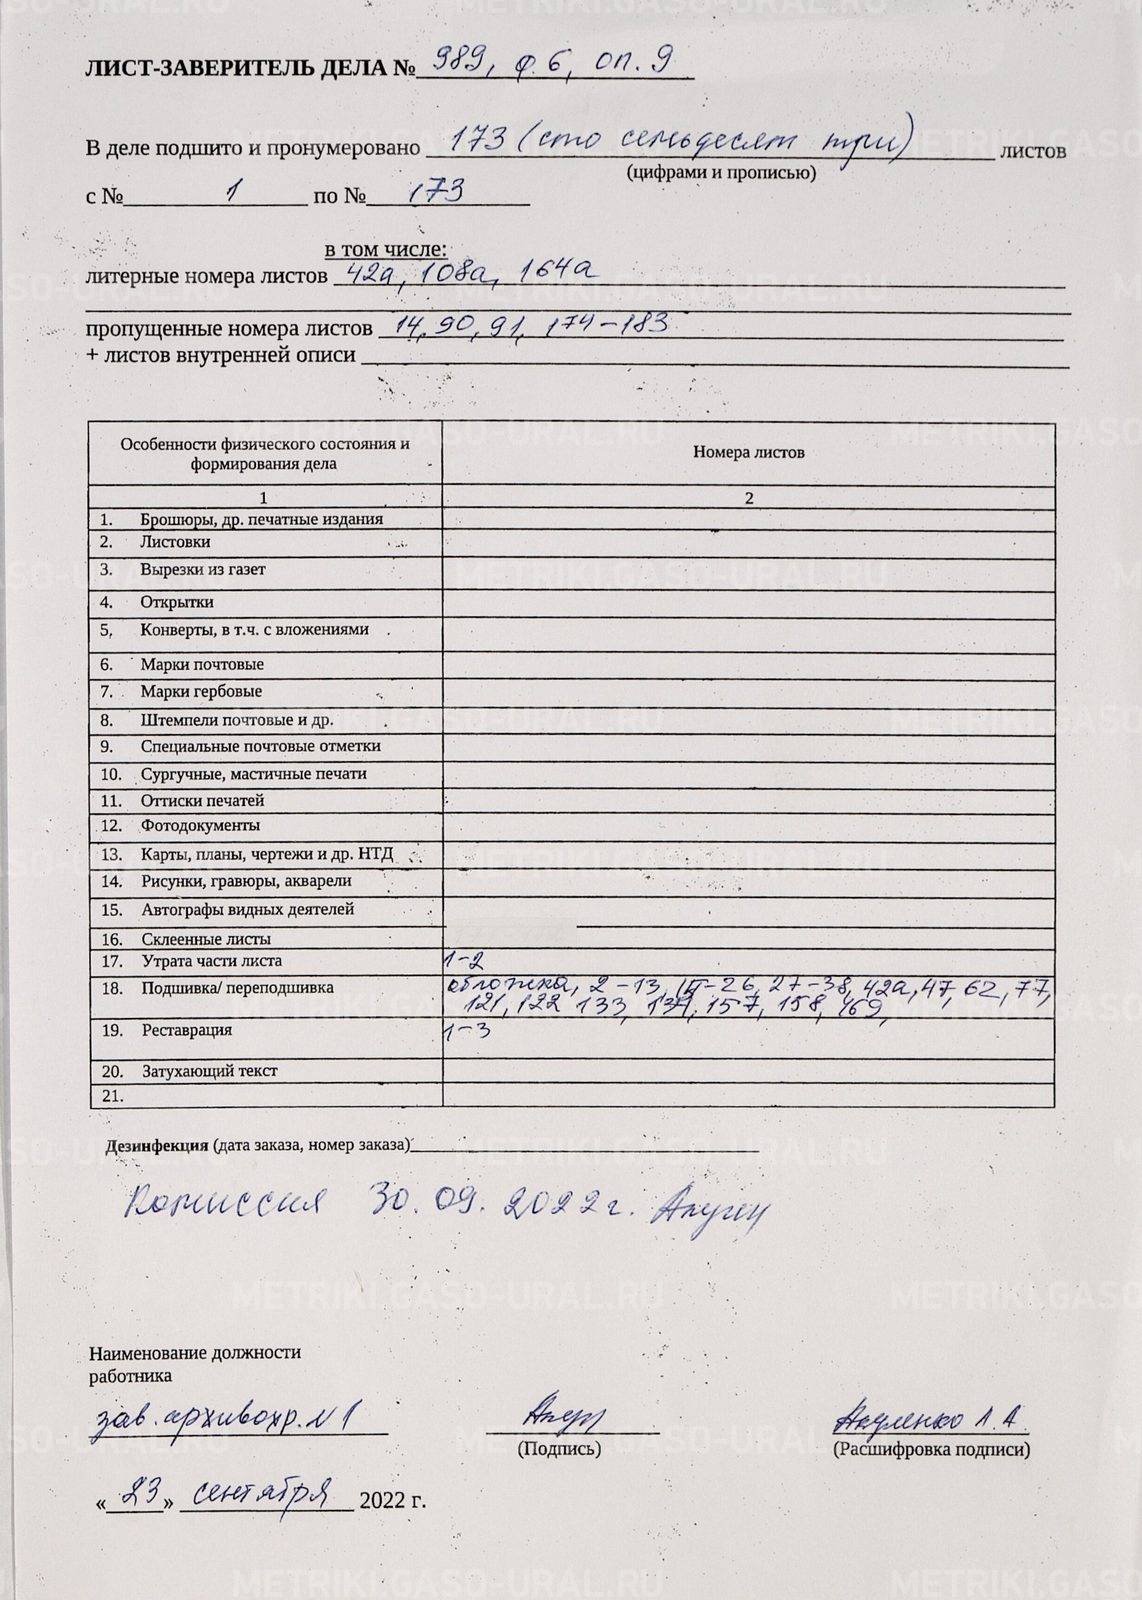 ЛИСТ-ЗАВЕРИТЕЛЬ ДЕЛА № 989, ф. 6, оп. 9
В деле подшито и пронумеровано 173 (сто семьдесят три) листов
(цифрами и прописью)
с № 1 по № 173
в том числе:
литерные номера листов 42а, 108а, 164а
пропущенные номера листов 14, 90, 91, 174-183
+ листов внутренней описи
Особенности физического состояния и
формирования дела
Номера листов
1 2
1. Брошюры, др. печатные издания
2. Листовки
3. Вырезки из газет
4. Открытки
5, Конверты, в т.ч. с вложениями
6. Марки почтовые
7. Марки гербовые
8. Штемпели почтовые и др.
9. Специальные почтовые отметки
10. Сургучные, мастичные печати
11. Оттиски печатей
12. Фотодокументы
13. Карты, планы, чертежи и др. НТД
14. Рисунки, гравюры, акварели
15. Автографы видных деятелей
16. Склеенные листы
17. Утрата части листа 1-2
18. Подшивка/ переподшивка обложка, 2-13, 27-38, 42а, 47, 62, 77,
121, 122 133, 134, 157, 158, 169,
19. Реставрация 1-3
20. Затухающий текст
21.
Дезинфекция (дата заказа, номер заказа)
Комиссия 30.09.2022г.
Наименование должности
работника
зав. архивохр. №1 Акуленко Л.А.
(Подпись) (Расшифровка подписи)
«23» сентября 2022 г.
METRIKI.GASO-URAL.RU